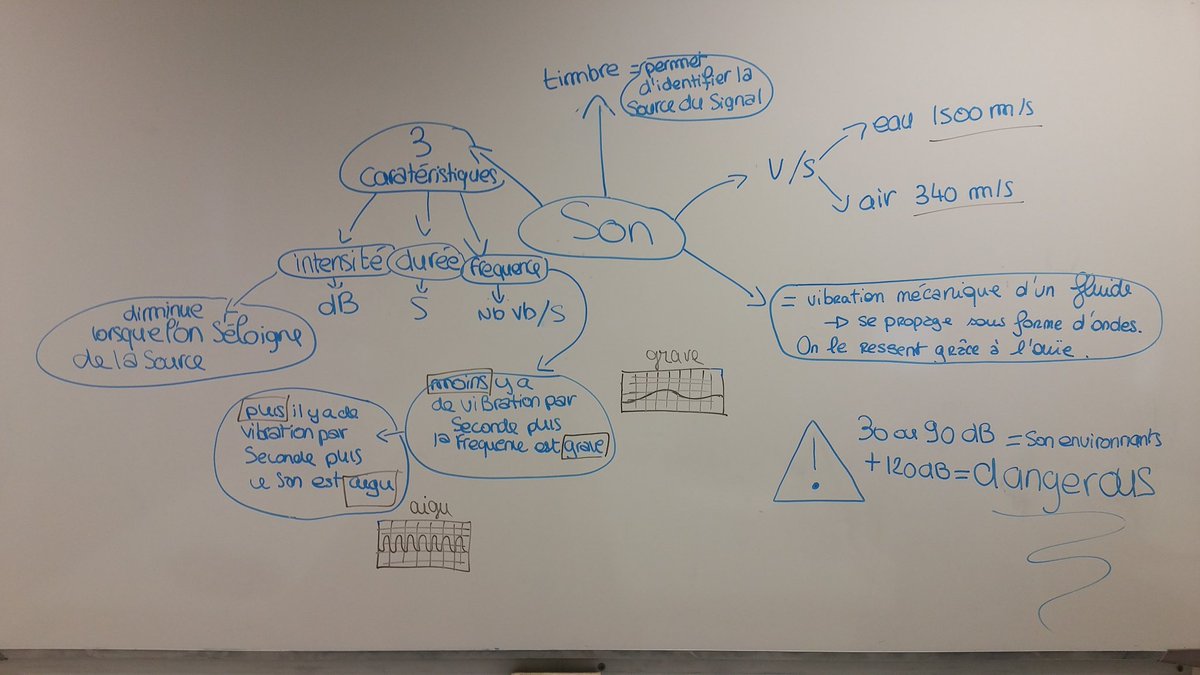 timbre = permet
d'identifier la
Source du Signal
3
caratéristiques
Son
V/S
eau 1500 m/s
air 340 m/s
intensité
durée
fréquence
dB
S
Nb Vb/S
diminue
lorsque l'on Séloigne
de la Source
= vibration mécanique d'un fluide
→ se propage sous forme d'ondes.
On le ressent grâce à l'ouïe.
grave
moins y a
de vibration par
Seconde plus
la fréquence est grave
plus il y a de
vibration par
Seconde plus
le son est aigu
aigu
30 ou 90 dB = Son environnants
+ 120 dB = dangerous